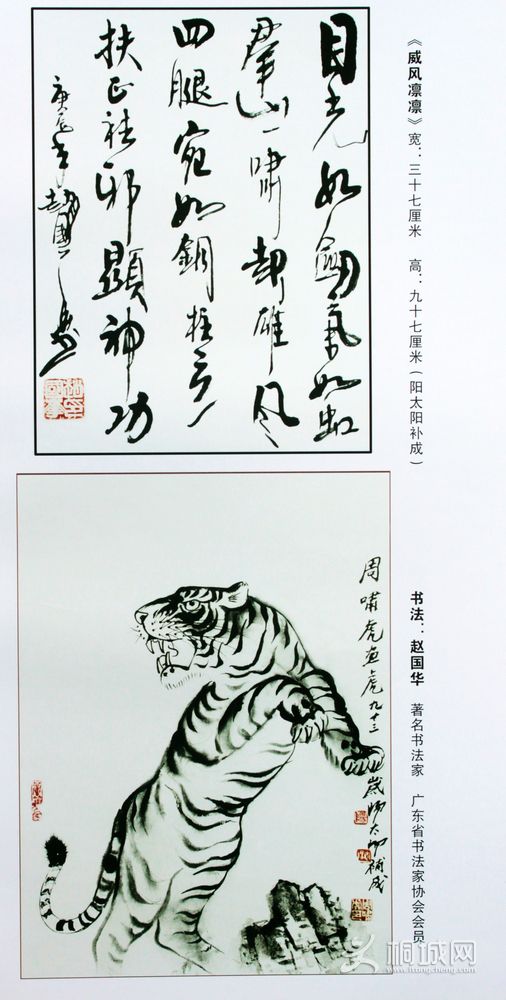 《威风凛凛》 宽：三十七厘米 高：九十七厘米（阳太阳补成）
目光如劍氣如虹
群山一嘯却雄风
四腿宛如鋼柱立
扶正祛邪顯神功
庚辰年趙國華書
书法：赵国华 著名书法家 广东省书法家协会会员
周嘯虎画虎九十三
歲陽太陽補成
桐城网
www.itongcheng.com